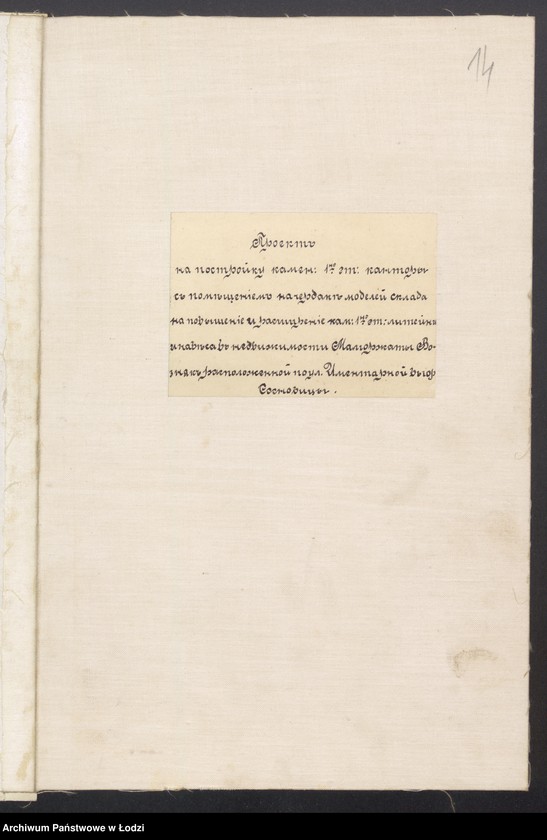 14
Проектъ
на постройку камен: 1го эт: канторы
съ помѣщеніемъ на чердакѣ моделей склада
на повышеніе и расширеніе кам: 1го эт: литейны
и навѣса въ недвижимости Малгоржаты Во-
знякъ расположенной по ул. Цментарной въ гор
Сосновицы.
Archiwum Państwowe w Łodzi